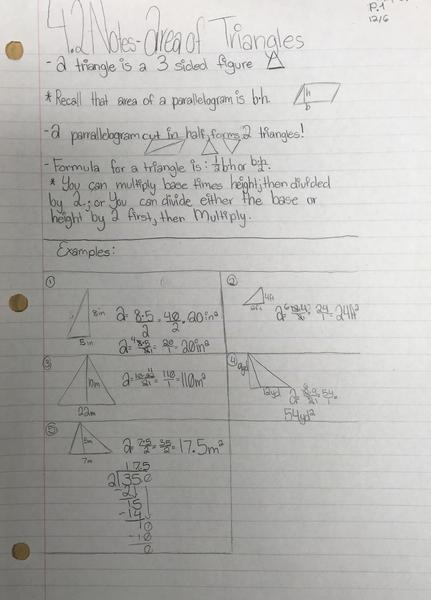 P.1
12/6
4.2 Notes-Area of Triangles
- a triangle is a 3 sided figure
* Recall that area of a parrallelogram is b·h.
h
b
- a parrallelogram cut in half, forms 2 triangles!
- Formula for a triangle is: ½b·h or b·h/2.
* You can multiply base times height, then divided
by 2.; or You can divide either the base or
height by 2 first, then Multiply.
Examples:
①
8in
5in
a= 8·5/2 = 40/2 = 20in²
a= 8·5/2 = 20/1 = 20in²
②
4ft
12ft
= 24/1 = 24ft²
③
10m
22m
= 110/1 = 110m²
④
9yd
12yd
54yd²
⑤
5m
7m
a= 7·5/2 = 35/2 = 17.5m²
17.5
2⟌35.0
-21
15
-14
10
-10
0